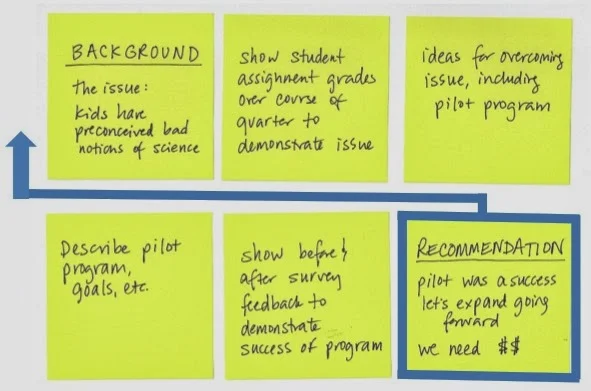 BACKGROUND
The issue:
kids have
preconceived bad
notions of science
show student
assignment grades
over course of
quarter to
demonstrate issue
ideas for overcoming
issue, including
pilot program
Describe pilot
program,
goals, etc.
show before &
after survey
feedback to
demonstrate
success of program
RECOMMENDATION
pilot was a success
let's expand going
forward
we need $$